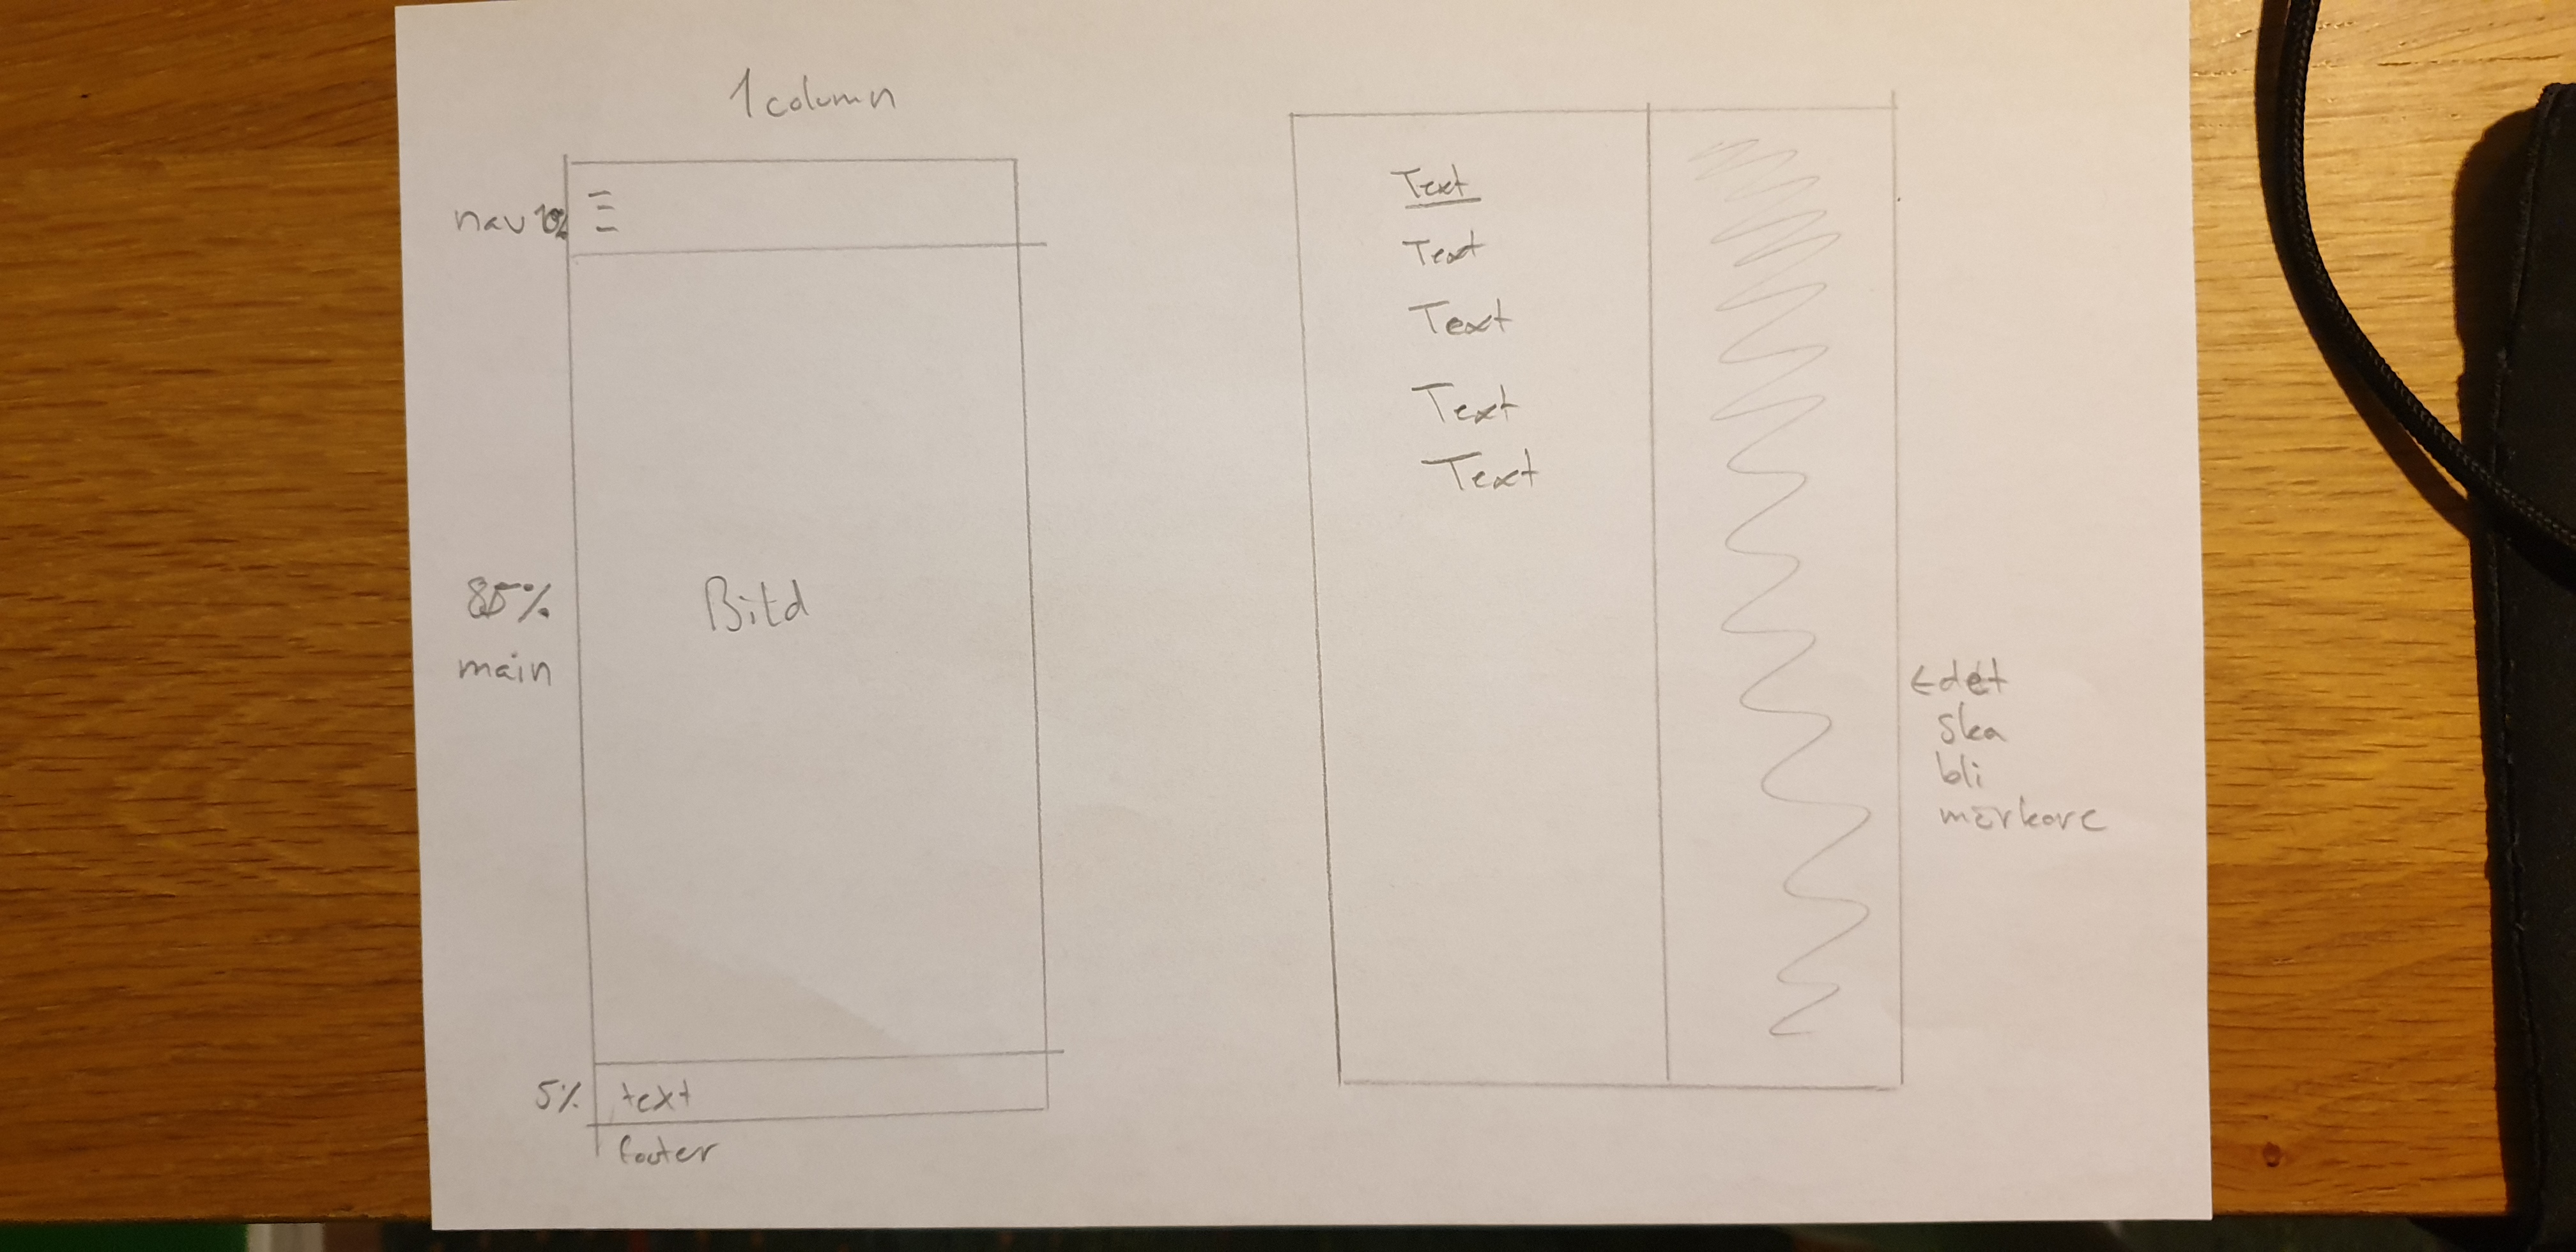 1 column
nav 10%
85%
main
Bild
5%
text
footer
Text
Text
Text
Text
Text
← det
ska
bli
mörkare